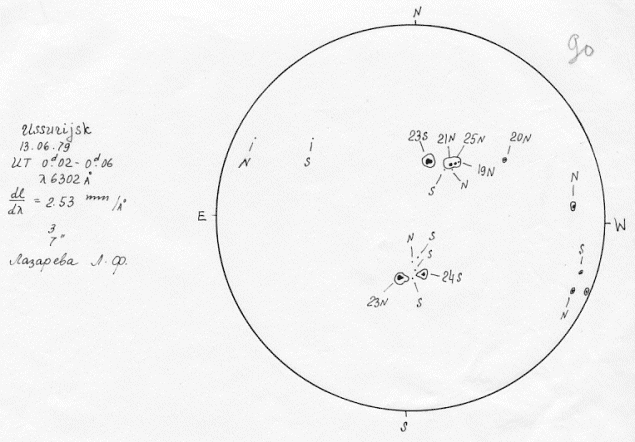 N
90
Ussurijsk
13.06.79
UT 0ᵈ.02 - 0ᵈ.06
λ 6302 Å
dl/dλ = 2.53 mm/Å
3
7"
Лазарева Л. Ф.
23S 21N 25N 20N
19N
N S
S N
N
E
W
N S
S
S
24S
23N S
N
S